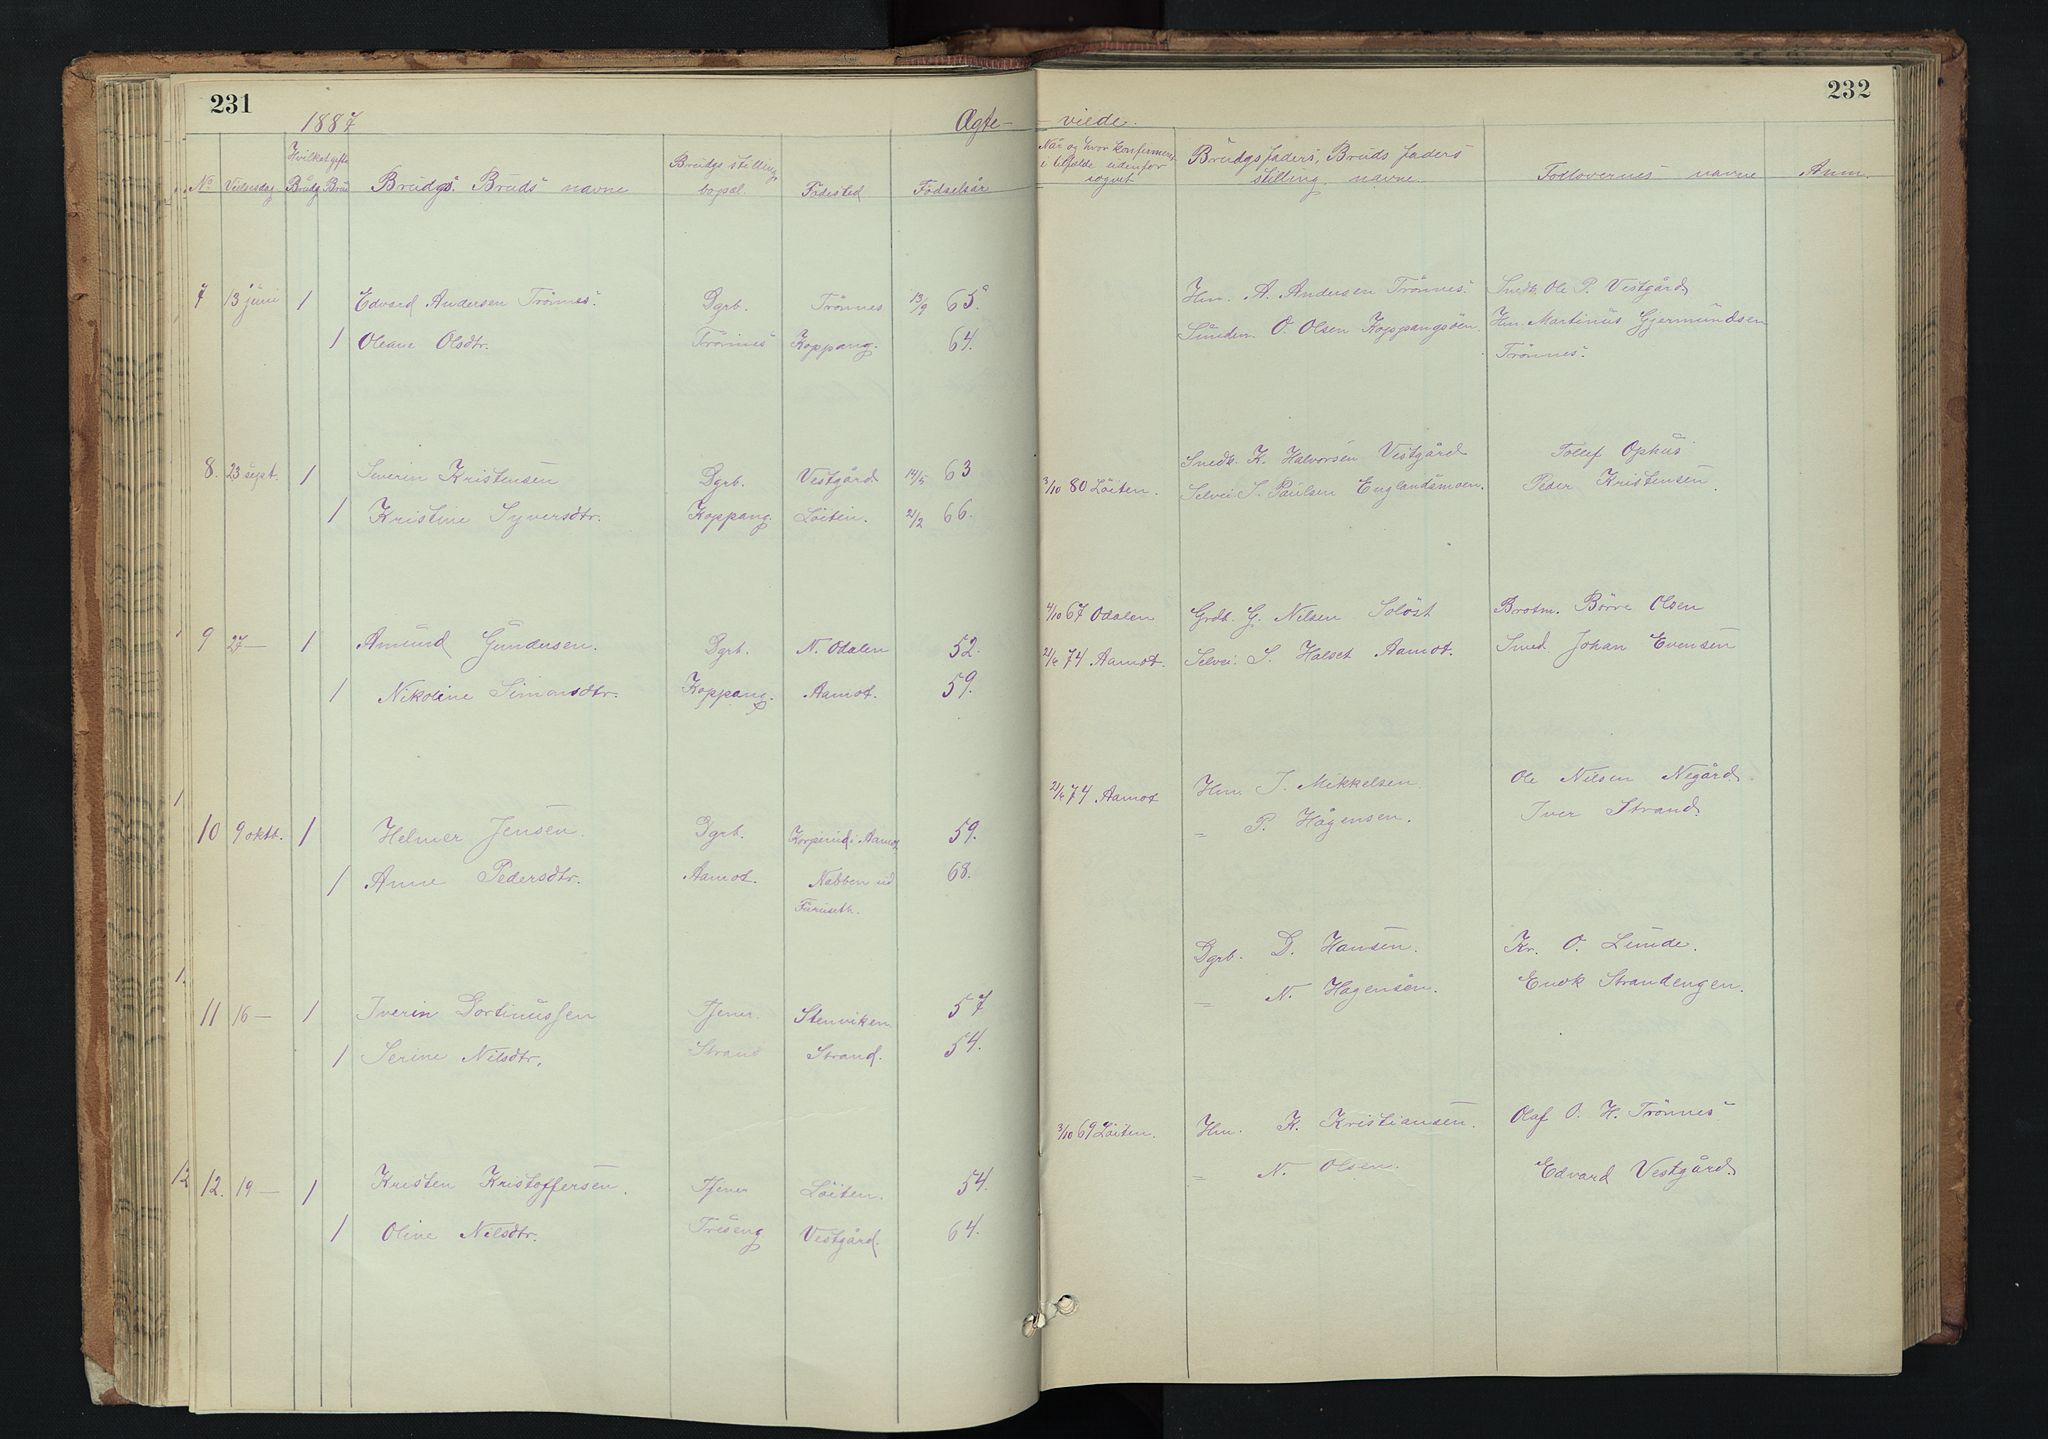 231
1887
Ægte-
No
Vielsesdag
Hvilket gifte
Brudg. Brud
Brudgs. Bruds navne
Brudgs stilling, bopæl.
Födested
Födselsår
7 13 juni 1 Edvard Andersen Trönnes. Dgrb. Trönnes 13/9 65.
1 Oleane Olsdtr. Trönnes Koppang. 64.
8. 23 sept. 1 Severin Kristensen Dgrb. Vestgård 14/5 63
1 Kristine Syversdtr. Koppang. Löiten. 21/2 66.
9 27 — 1 Amund Gundersen. Dgrb. N. Odalen 52.
1 Nikoline Simonsdtr. Koppang. Aamot. 59.
10 9 oktb. 1 Helmer Jensen. Dgrb. Aamot 59.
1 Anne Pedersdtr. Aamot. Nabben ud 68.
Furuseth.
11 16 — 1 Iverin Dortinussen Tjener. Stenviken 57
1 Serine Nilsdtr. Strand Strand. 54.
12. 19 — 1 Kristen Kristoffersen. Tjener Löiten. 54.
1 Oline Nilsdtr. Treseng Vestgård. 64.
232
viede.
Når og hvor konfirmeret
i tilfælde udenfor
sognet
Brudgs faders, Bruds faders
stilling, navne.
Forlovernes navne
Anm.
Hm. A. Andersen Trönnes. Snedk. Ole P. Vestgård
O. Olsen Koppangsöen. Hm. Martinus Gjermundsen
Trönnes.
Snedk. K. Halvorsen Vestgård Tollef Ophus
3/10 80 Löiten. Selvei. S. Paulsen Englandsmoen. Peder Kristensen.
4/10 67 Odalen Grdb. G. Nilsen Solöst Brotm. Börre Olsen
21/6 74 Aamot. Selvei. S. Halset Aamot. Smed. Johan Evensen
21/6 74 Aamot Hm. J. Mikkelsen. Ole Nilsen Negård.
" P. Hågensen. Iver Strand.
Dgrb. D. Hansen. Kr. O. Lunde.
" N. Hagensen. Enok Strandengen.
3/10 69 Löiten. Hm. K. Kristiansen. Olaf O. H. Trönnes
" N. Olsen. Edvard Vestgård.